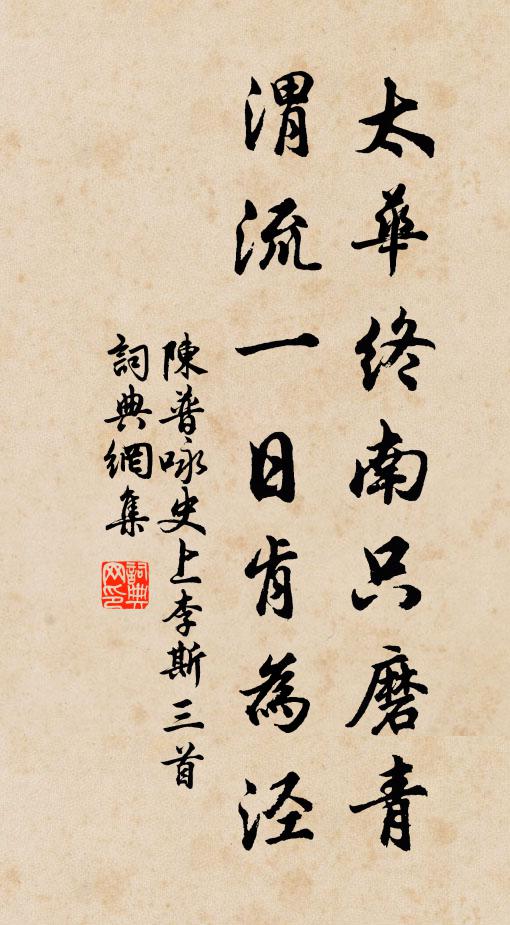 太華終南只磨青
渭流一日肯為涇
陳普咏史上李斯三首
詞典網集
詞典网印